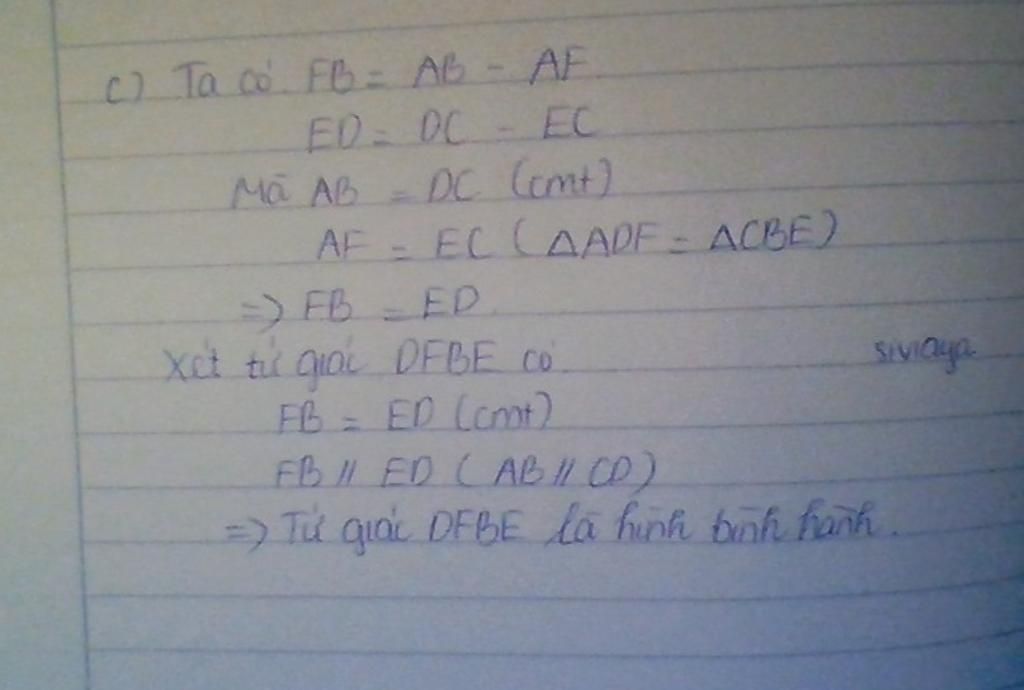 c) Ta có FB = AB - AF
ED = DC - EC
Mà AB = DC (cmt)
AF = EC (ΔADF = ΔCBE)
=> FB = ED
Xét tứ giác DFBE có
siviaya
FB = ED (cmt)
FB // ED (AB // CD)
=> Tứ giác DFBE là hình bình hành.